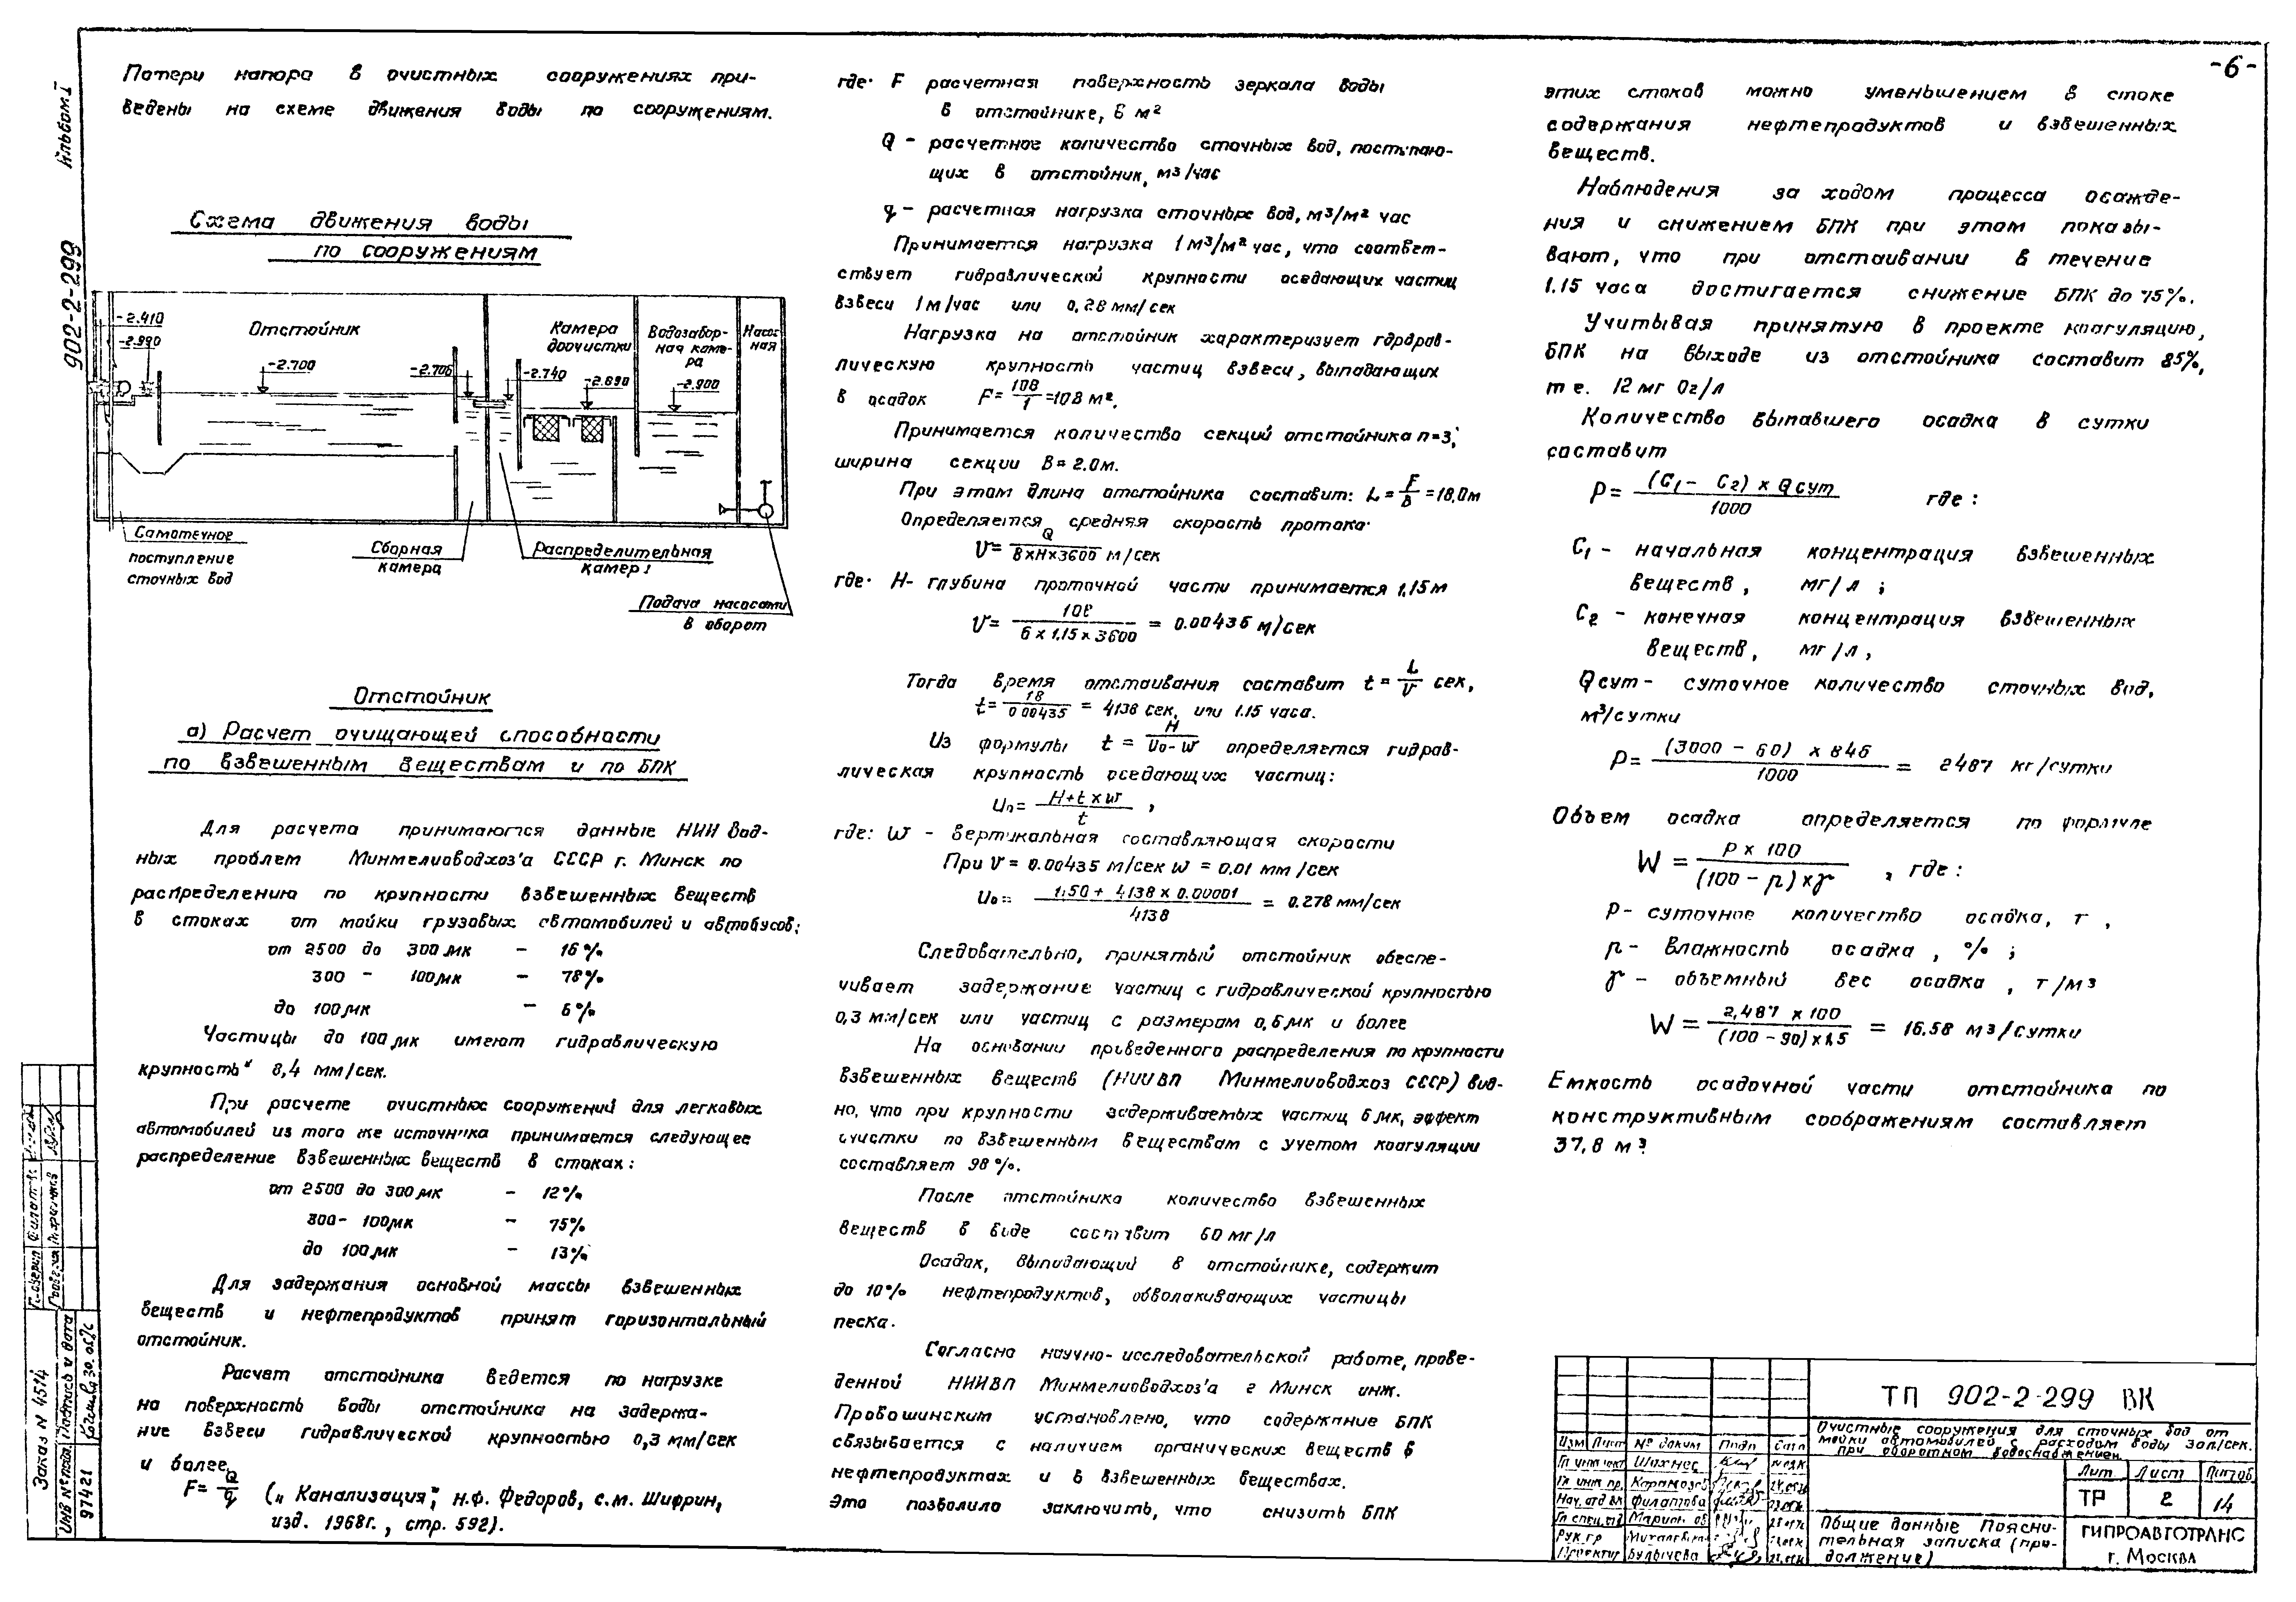 -6-
Альбом I
902-2-299
Потери напора в очистных сооружениях при-
ведены на схеме движения воды по сооружениям.
Схема движения воды
по сооружениям
-2.410
-2.990
Отстойник
-2.700
-2.706
Камера
доочистки
-2.740
-2.890
Водозабор-
ная каме-
ра
-2.900
Насос
ная
Самотечное
поступление
сточных вод
Сборная
камера
Распределительная
Подача насосами
в оборот
Отстойник
а) Расчет очищающей способности
по взвешенным веществам и по БПК
Для расчета принимаются данные НИИ вод-
ных проблем Минмелиоводхоз'а СССР г. Минск по
распределению по крупности взвешенных веществ
в стоках от мойки грузовых автомобилей и автобусов:
от 2500 до 300 мк - 16%
300 - 100мк - 78%
до 100 мк - 6%
Частицы до 100 мк имеют гидравлическую
крупность 8,4 мм/сек.
При расчете очистных сооружений для легковых
автомобилей из того же источника принимается следующее
распределение взвешенных веществ в стоках:
от 2500 до 300 мк - 12%
300- 100мк - 75%
до 100 мк - 13%
Для задержания основной массы взвешенных
веществ и нефтепродуктов принят горизонтальный
отстойник.
Расчет отстойника ведется по нагрузке
на поверхность воды отстойника на задержа-
ние взвеси гидравлической крупностью 0,3 мм/сек
и более
F= Q/q („Канализация", Н.Ф. Федоров, С.М. Шифрин,
изд. 1968г., стр. 592).
где: F расчетная поверхность зеркала воды
в отстойнике, в м²
Q - расчетное количество сточных вод, поступаю-
щих в отстойник, м³/час
q - расчетная нагрузка сточных вод, м³/м² час
Принимается нагрузка 1 м³/м² час, что соответ-
ствует гидравлической крупности оседающих частиц
взвеси 1м/час или 0,28 мм/сек
Нагрузка на отстойник характеризует гдрдрав-
лическую крупность частиц взвеси, выпадающих
в осадок F= 108/1 =108 м².
Принимается количество секций отстойника n=3;
ширина секции В= 2.0м.
При этом длина отстойника составит: L= F/B =18,0м
Определяется средняя скорость протока:
V= Q/(B×H×3600) м/сек
где: H- глубина проточной части принимается 1,15м
V= 108/(6 × 1.15 × 3600) = 0.00436 м/сек
Тогда время отстаивания составит t= L/V сек,
t= 18/0 00435 = 4138 сек, или 1.15 часа.
Из формулы t = H/(U₀-W) определяется гидрав-
лическая крупность оседающих частиц:
U₀= (H+t×W)/t ,
где: W - вертикальная составляющая скорости
При V = 0.00435 м/сек W = 0.01 мм/сек
U₀= (1.50 + 4138 × 0.00001)/4138 = 0.278 мм/сек
Следовательно, принятый отстойник обеспе-
чивает задержание частиц с гидравлической крупностью
0,3 мм/сек или частиц с размерам 0,6мк и более
На основании приведенного распределения по крупности
взвешенных веществ (НИИВП Минмелиоводхоз СССР) вид-
но, что при крупности задерживаемых частиц 6 мк, эффект
очистки по взвешенным веществам с учетом коагуляции
составляет 98%.
После отстойника количество взвешенных
веществ в воде составит 60 мг/л
Осадок, выпадающий в отстойнике, содержит
до 10% нефтепродуктов, обволакивающих частицы
песка.
Согласно научно-исследовательской работе, прове-
денной НИИВП Минмелиоводхоз'а г Минск инж.
Провошинским установлено, что содержание БПК
связывается с наличием органических веществ в
нефтепродуктах и в взвешенных веществах.
Это позволило заключить, что снизить БПК
этих стоков можно уменьшением в стоке
содержания нефтепродуктов и взвешенных
веществ.
Наблюдения за ходом процесса осажде-
ния и снижением БПК при этом показы-
вают, что при отстаивании в течение
1.15 часа достигается снижение БПК до 75%.
Учитывая принятую в проекте коагуляцию,
БПК на выходе из отстойника составит 85%,
т е. 12 мг О₂/л
Количество выпавшего осадка в сутки
составит
P= (C₁ - C₂) × Qсут/1000 где:
C₁ - начальная концентрация взвешенных
веществ, мг/л ;
C₂ - конечная концентрация взвешенных
веществ, мг/л,
Qсут- суточное количество сточных вод,
м³/сутки
P= (3000 - 60) × 846/1000 = 2487 кг/сутки
Объем осадка определяется по формуле
W = P × 100/((100 - p)×γ) , где:
P- суточное количество осадка, т ,
p- влажность осадка , % ;
γ - объемный вес осадка , т/м³
W = 2,487 × 100/((100 - 90)×1,5) = 16.58 м³/сутки
Емкость осадочной части отстойника по
конструктивным соображениям составляет
37,8 м³
Заказ N 4514
Инв № подл.
Подпись и дата
97421
ТП 902-2-299 ВК
Очистные сооружения для сточных вод от
мойки автомобилей с расходом воды 30л/сек.
при оборотном водоснабжении
Изм Лист № докум Подп Дата
Шахнес
Нач. отд ВК Филатова
Гл спец.
Рук.гр
Проектир Булычева
Лит Лист Листов
ТР 2 14
Общие данные Поясни-
тельная записка (про-
должение)
ГИПРОАВТОТРАНС
г. Москва